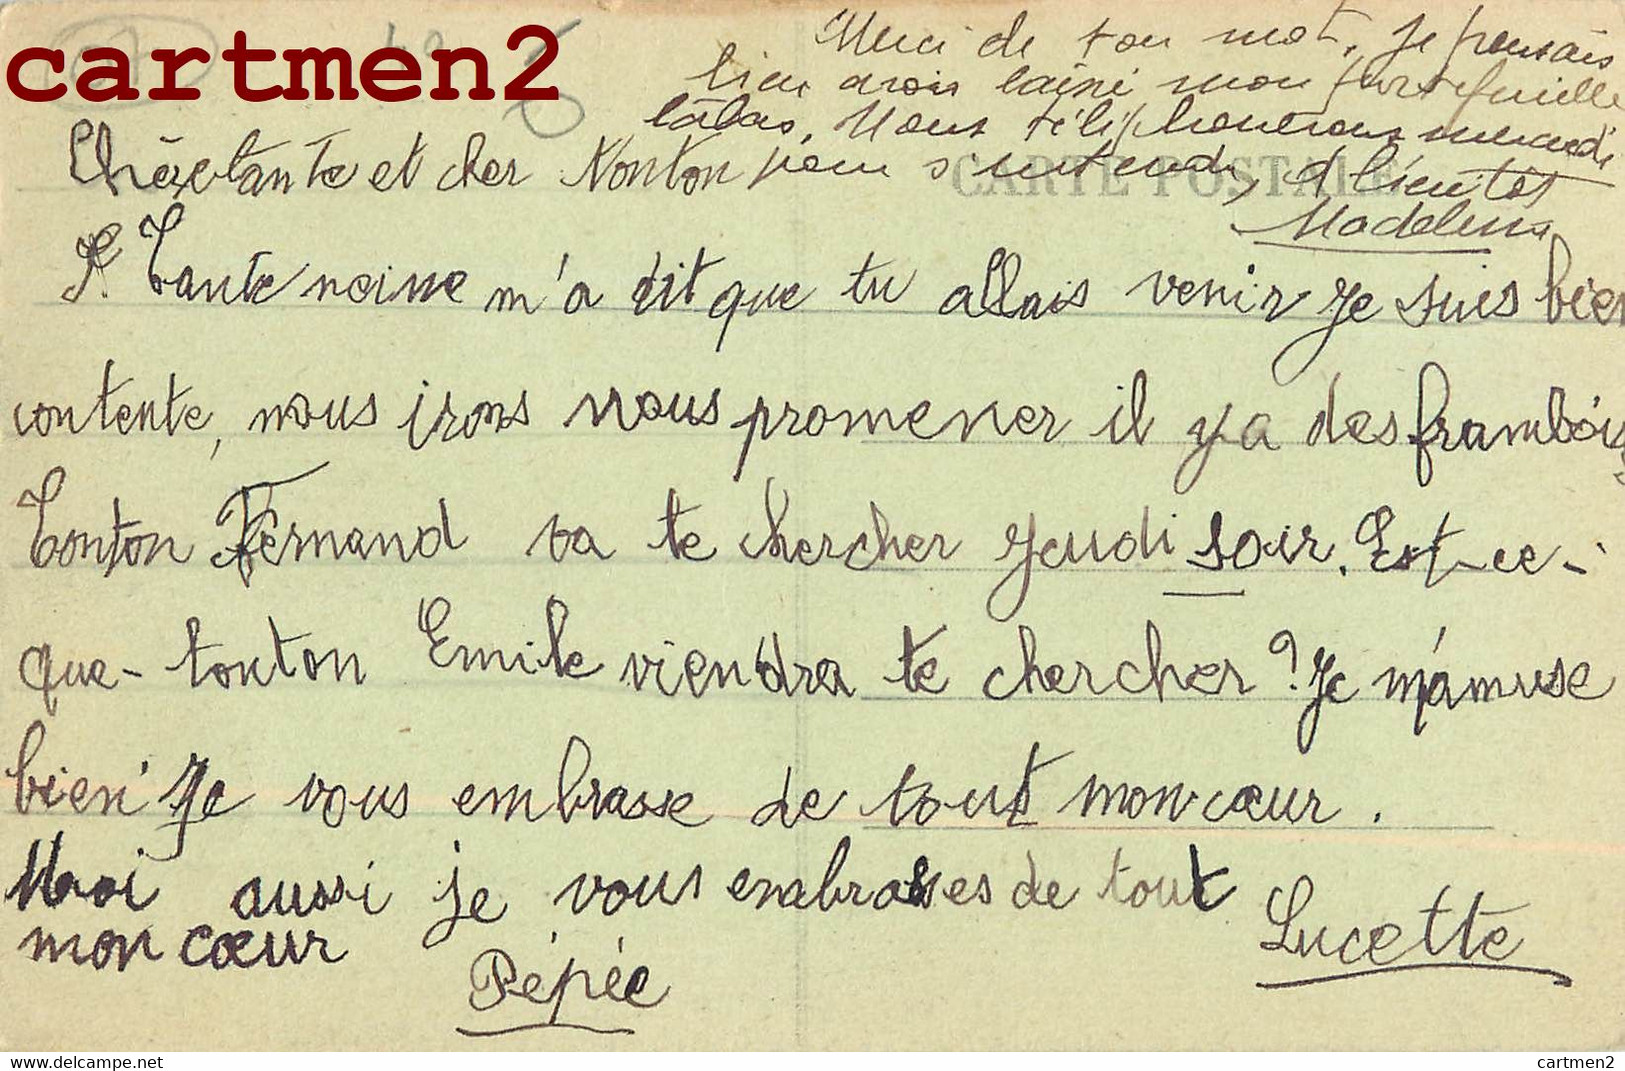 cartmen2
Merci de ton mot, je pensais
bien avoir laissé mon portefeuille
làbas. Nous téléphonerons mercredi
pour s'entendre, A bientôt
Madeleine
CARTE POSTALE
Chère tante et cher Nonton
Tante reine m'a dit que tu allais venir je suis bien
contente, nous irons nous promener il y a des framboises
Tonton Fernand va te chercher jeudi soir. Est-ce-
que-tonton Emile viendra te chercher? Je m'amuse
bien Je vous embrasse de tout mon cœur.
Moi aussi je vous embrasses de tout
mon cœur
Lucette
Pépée
delcampe.net
cartmen2